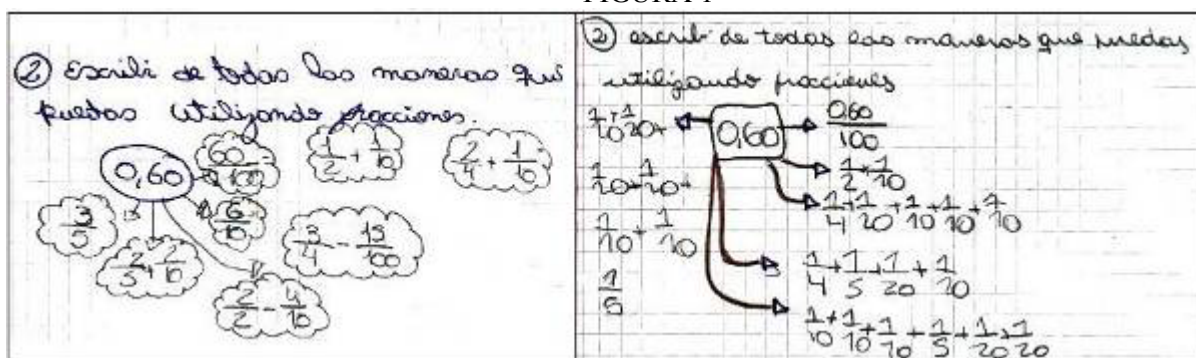 FIGURA 1
② Escribi de todas las maneras que
puedas utilizando fracciones.
0,60
60/100
1/2 + 1/10
2/4 + 1/10
3/5
6/10
2/5 + 2/10
3/4 - 15/100
2/2 - 4/10
② escribi de todas las maneras que puedas
utilizando fracciones
1/10 + 1/20 +
1/20 + 1/20 +
1/10 + 1/10
1/5
0,60
0,60/100
1/2 + 1/10
1/4 + 1/20 + 1/10 + 1/10 + 1/10
1/4 + 1/5 + 1/20 + 1/10
1/10 + 1/10 + 1/10 + 1/5 + 1/20 + 1/20